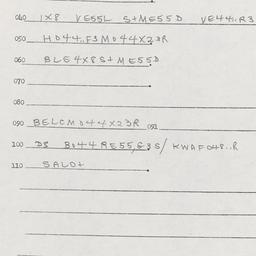 040 1X8 VE55L S+ME55D VE44..R3
050 HD44..F3MD44X23R
060 BLE4X8S+ME55D
070
080
090 BELCMD44X23R 091
100 D8 BD44RE55,E3S/ KWAF048..R
110 SALD+